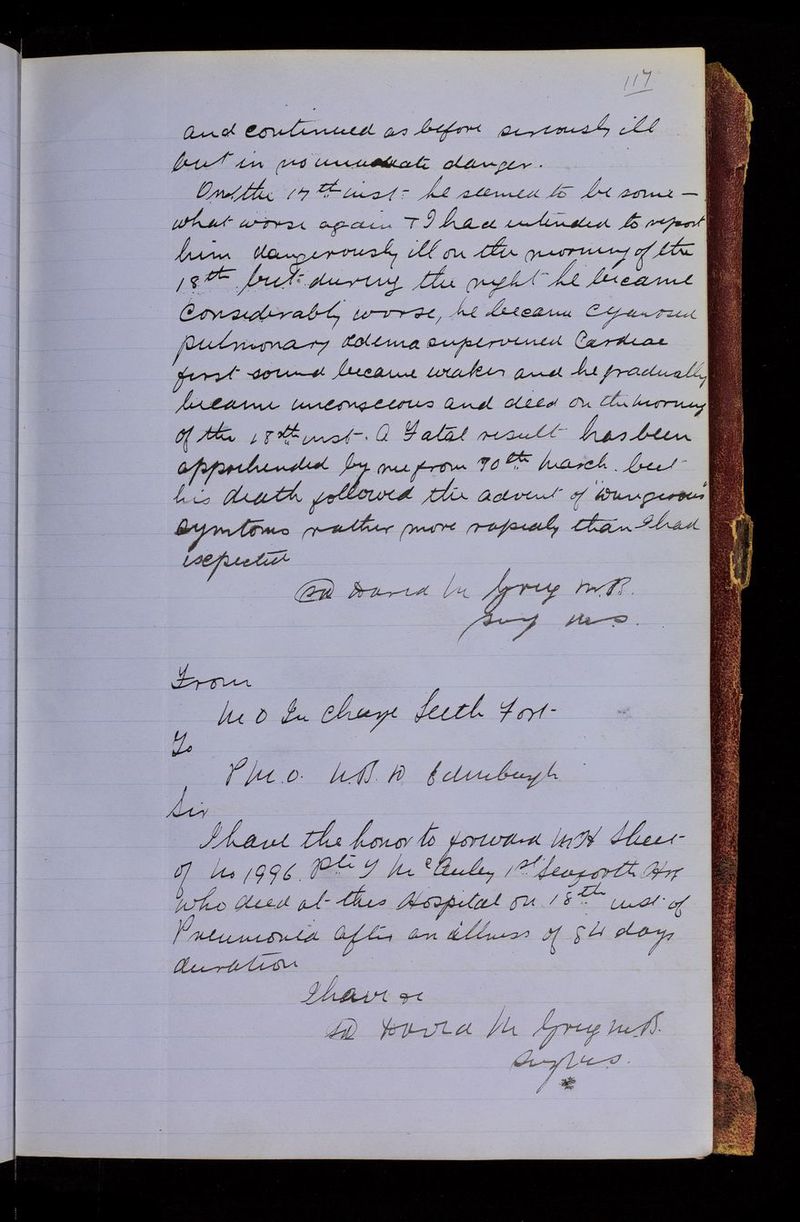 117
and continued as before seriously ill
but in no immediate danger.
On the 17th inst: he seemed to be some-
what worse again + I had intended to report
him dangerously ill on the morning of the
18th but during the night he became
Considerably worse, he became cyanosed
pulmonary œdema supervened Cardiac
first sound became weaker and he gradually
became unconscious and died on the morning
of the 18th inst. A Fatal result has been
apprehended by me from 30th March. but
his death followed the advent of "dangerous"
symtoms rather more rapidly than I had
expected
Sd David M Greig M.B.
Surg M.S.
From
M O In Charge Leith Fort
To
P M.O. N.B.D Edinburgh
Sir
I have the honor to forward M.H Sheet
of No 1996. Pte J McAuley 1st Seaforth Hrs
who died at this Hospital on 18th inst of
Pneumonia after an illness of 84 days
duration
I have &c
Sd David M Greig M.B.
Surg M.S.